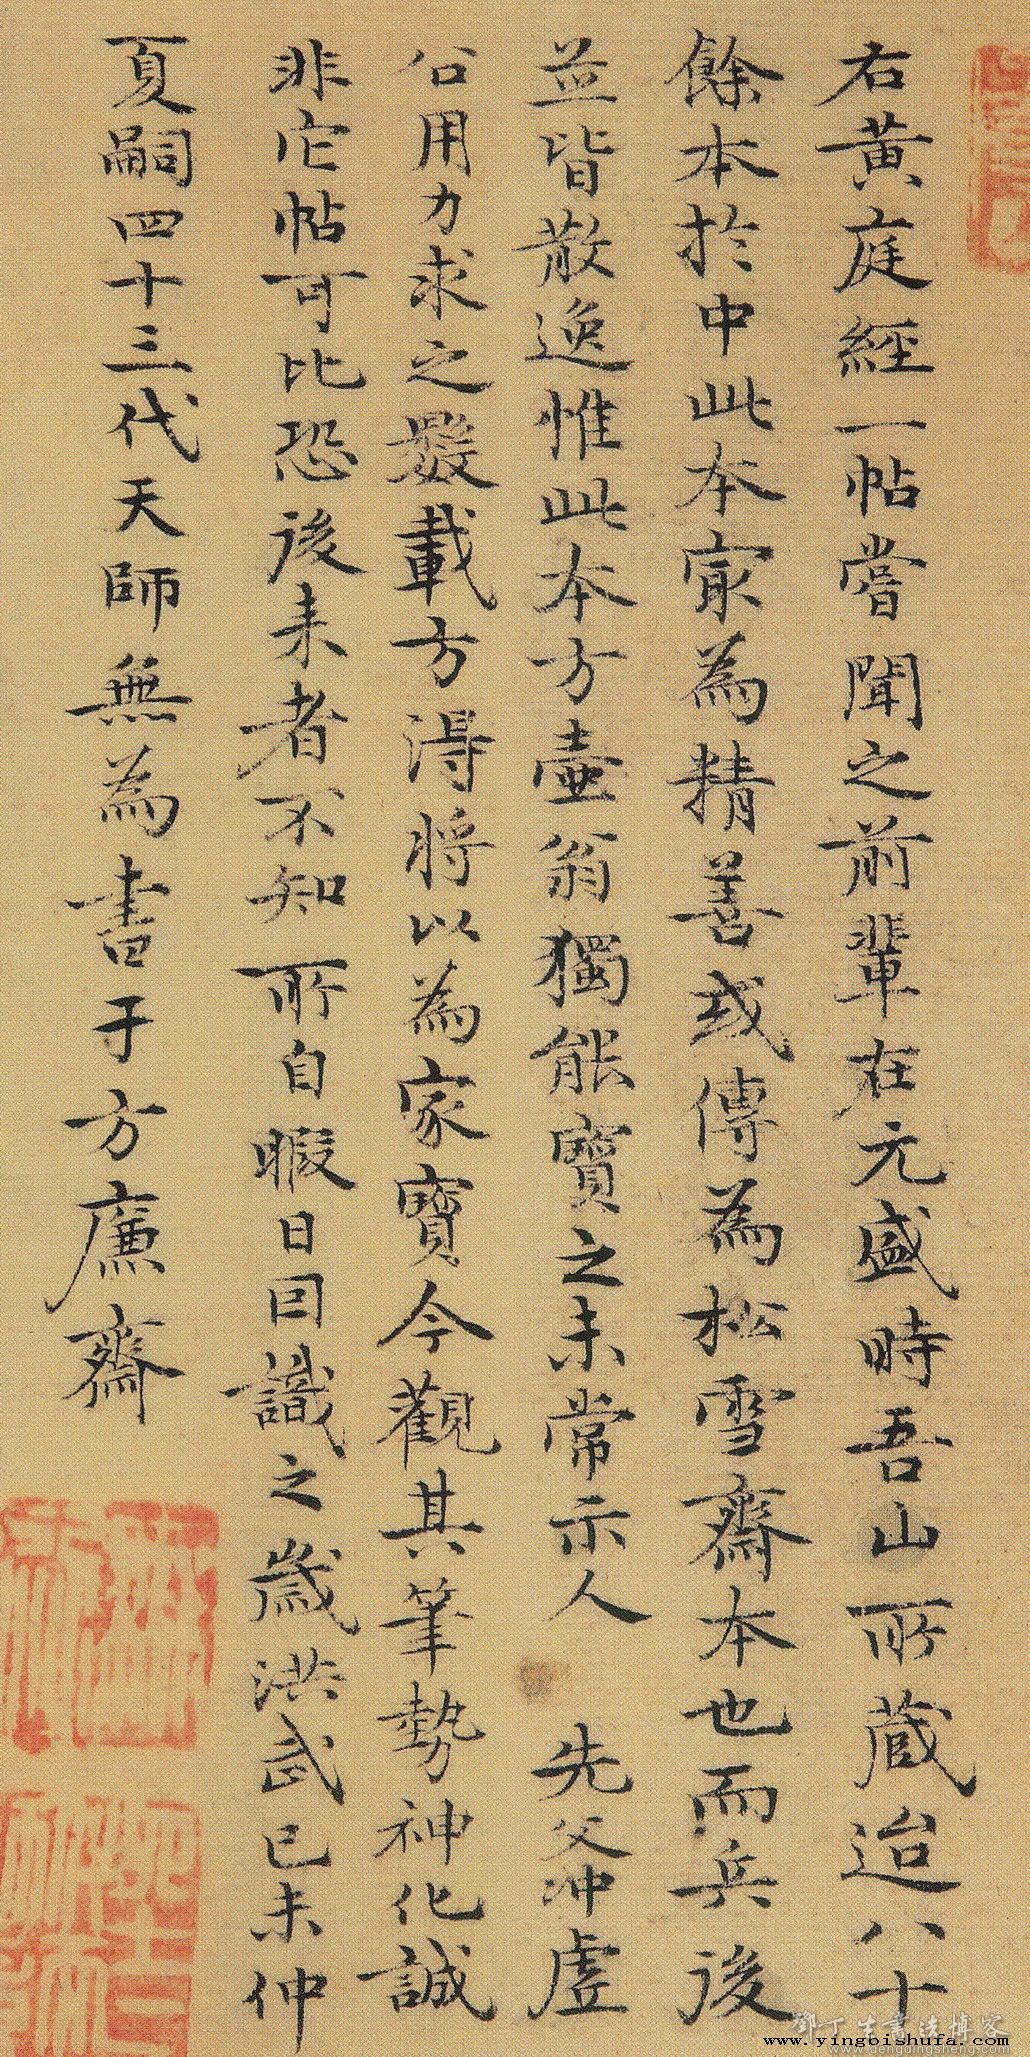 右黃庭經一帖嘗聞之前輩在元盛時吾山所蔵迨八十
餘本於中此本冣為精善或傳為松雪齋本也而兵後
並皆散逸惟此本方壷翁獨能寶之未常示人　先父冲虛
公用力求之數載方淂將以為家寶今觀其筆勢神化誠
非它帖可比恐後来者不知所自暇日因識之歲洪武己未仲
夏嗣四十三代天師無為書于方廉齋
鄧丁生書法博客
www.yingbishufa.com
www.dengdingsheng.com